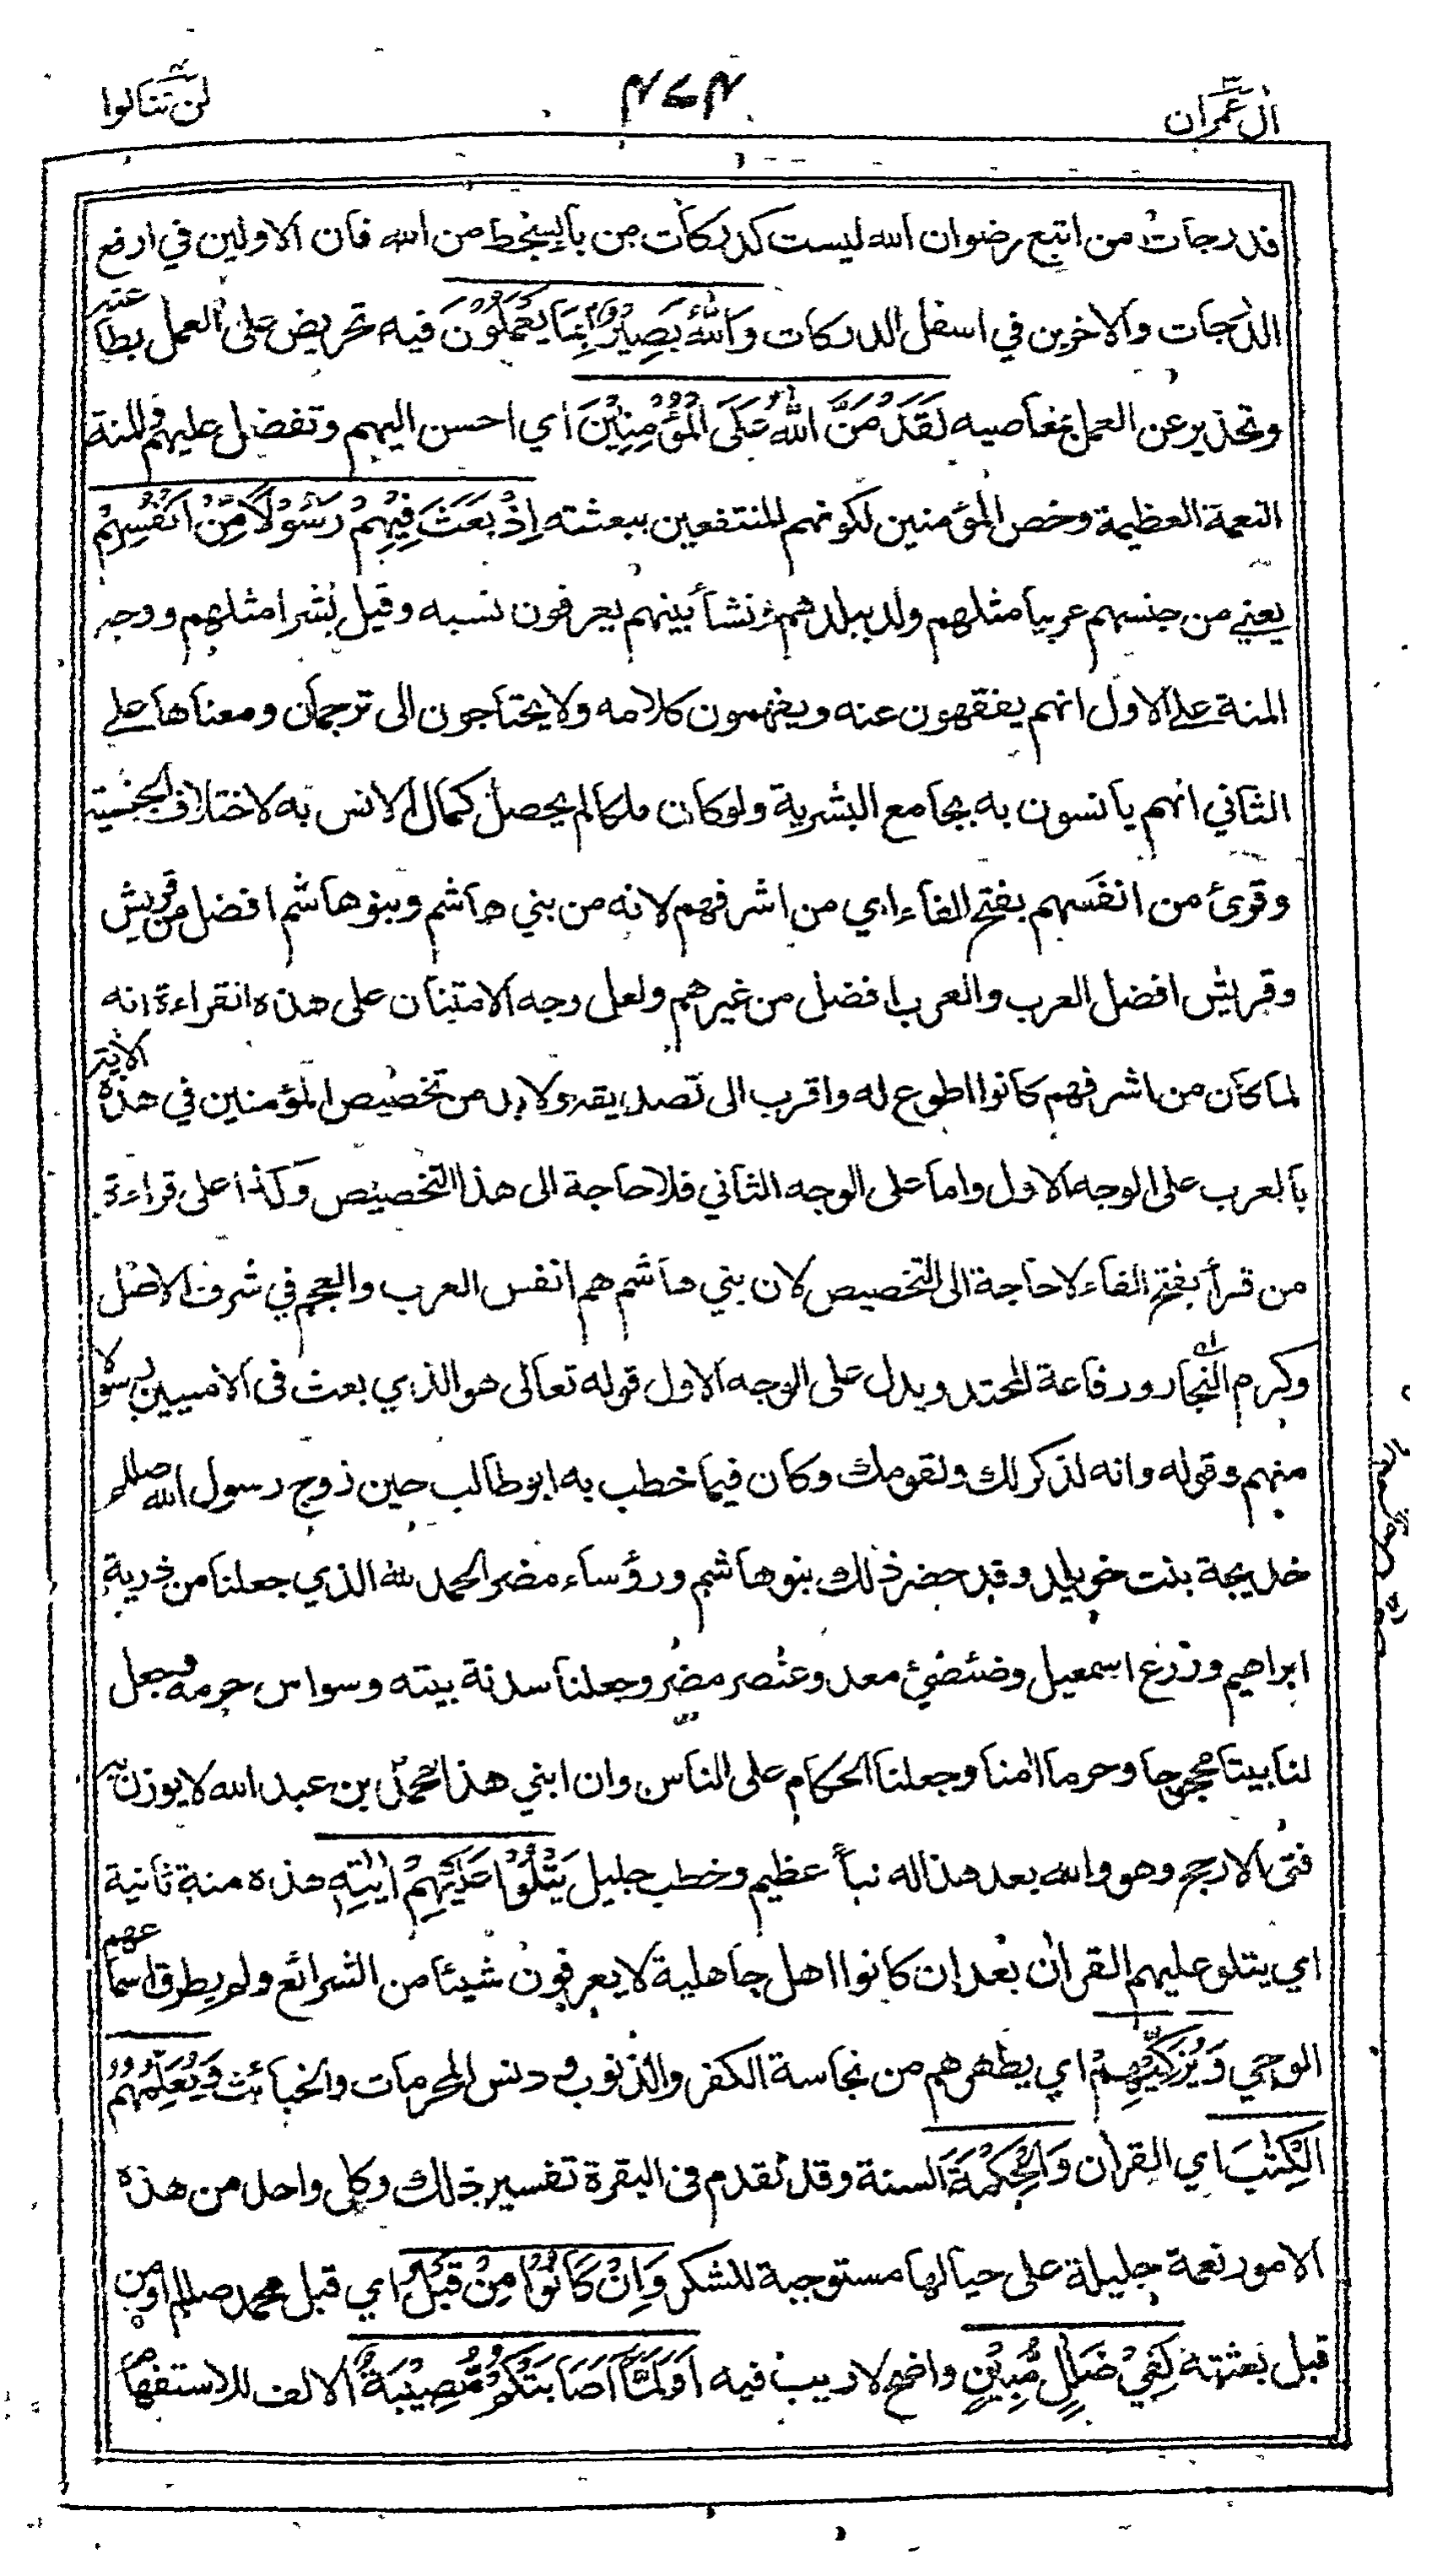 اٰل عمرٰن
٤٧٢
لن تنالوا
فدرجات من اتبع رضوان الله ليست كدركات من باء بسخط من الله فان الاولين في ارفع
الدرجات والاخرين في اسفل الدركات وَاللّٰهُ بَصِيْرٌۢ بِمَا يَعْمَلُوْنَ فيه تحريض على العمل بطاعته
وتحذير عن العمل بمعاصيه لَقَدْ مَنَّ اللّٰهُ عَلَى الْمُؤْمِنِيْنَ اي احسن اليهم وتفضل عليهم والمنة
النعمة العظيمة وخص المؤمنين لكونهم المنتفعين ببعثته اِذْ بَعَثَ فِيْهِمْ رَسُوْلًا مِّنْ اَنْفُسِهِمْ
يعني من جنسهم عربيا مثلهم ولد ببلدهم ونشأ بينهم يعرفون نسبه وقيل بشرا مثلهم ووجه
المنة على الاول انهم يفقهون عنه ويفهمون كلامه ولا يحتاجون الى ترجمان ومعناها على
الثاني انهم يأنسون به بجامع البشرية ولو كان ملكا لم يحصل كمال الانس به لاختلاف الجنسية
وقرئ من انفَسهم بفتح الفاء اي من اشرفهم لانه من بني هاشم وبنو هاشم افضل من قريش
وقريش افضل العرب والعرب افضل من غيرهم ولعل وجه الامتنان على هذه القراءة انه
لما كان من اشرفهم كانوا اطوع له واقرب الى تصديقه ولا بد من تخصيص المؤمنين في هذه الاية
بالعرب على الوجه الاول واما على الوجه الثاني فلا حاجة الى هذا التخصيص وكذا على قراءة
من قرأ بفتح الفاء لا حاجة الى التخصيص لان بني هاشم هم انفس العرب والعجم في شرف الاصل
وكرم النجار ورفاعة المحتد ويدل على الوجه الاول قوله تعالى هو الذي بعث في الاميين رسولا
منهم وقوله وانه لذكر لك ولقومك وكان فيما خطب به ابو طالب حين زوج رسول الله صللم
خديجة بنت خويلد وقد حضر ذلك بنو هاشم ورؤساء مضر الحمد لله الذي جعلنا من ذرية
ابراهيم وزرع اسمعيل وضئضئ معد وعنصر مضر وجعلنا سدنة بيته وسواس حرمه وجعل
لنا بيتا محجوجا وحرما اٰمنا وجعلنا الحكام على الناس وان ابني هذا محمد بن عبد الله لا يوزن به
فتى الا رجح وهو والله بعد هذا له نبأ عظيم وخطب جليل يَتْلُوْا عَلَيْهِمْ اٰيٰتِهٖ هذه منة ثانية
اي يتلو عليهم القراٰن بعد ان كانوا اهل جاهلية لا يعرفون شيئا من الشرائع ولم يطرق اسماعهم
الوحي وَيُزَكِّيْهِمْ اي يطهرهم من نجاسة الكفر والذنوب ودنس المحرمات والخبائث وَيُعَلِّمُهُمُ
الْكِتٰبَ اي القراٰن وَالْحِكْمَةَ السنة وقد تقدم في البقرة تفسير ذلك وكل واحد من هذه
الامور نعمة جليلة على حيالها مستوجبة للشكر وَاِنْ كَانُوْا مِنْ قَبْلُ اي قبل محمد صللم او من
قبل بعثته لَفِيْ ضَلٰلٍ مُّبِيْنٍ واضح لا ريب فيه اَوَلَمَّا اَصَابَتْكُمْ مُّصِيْبَةٌ الالف للاستفهام